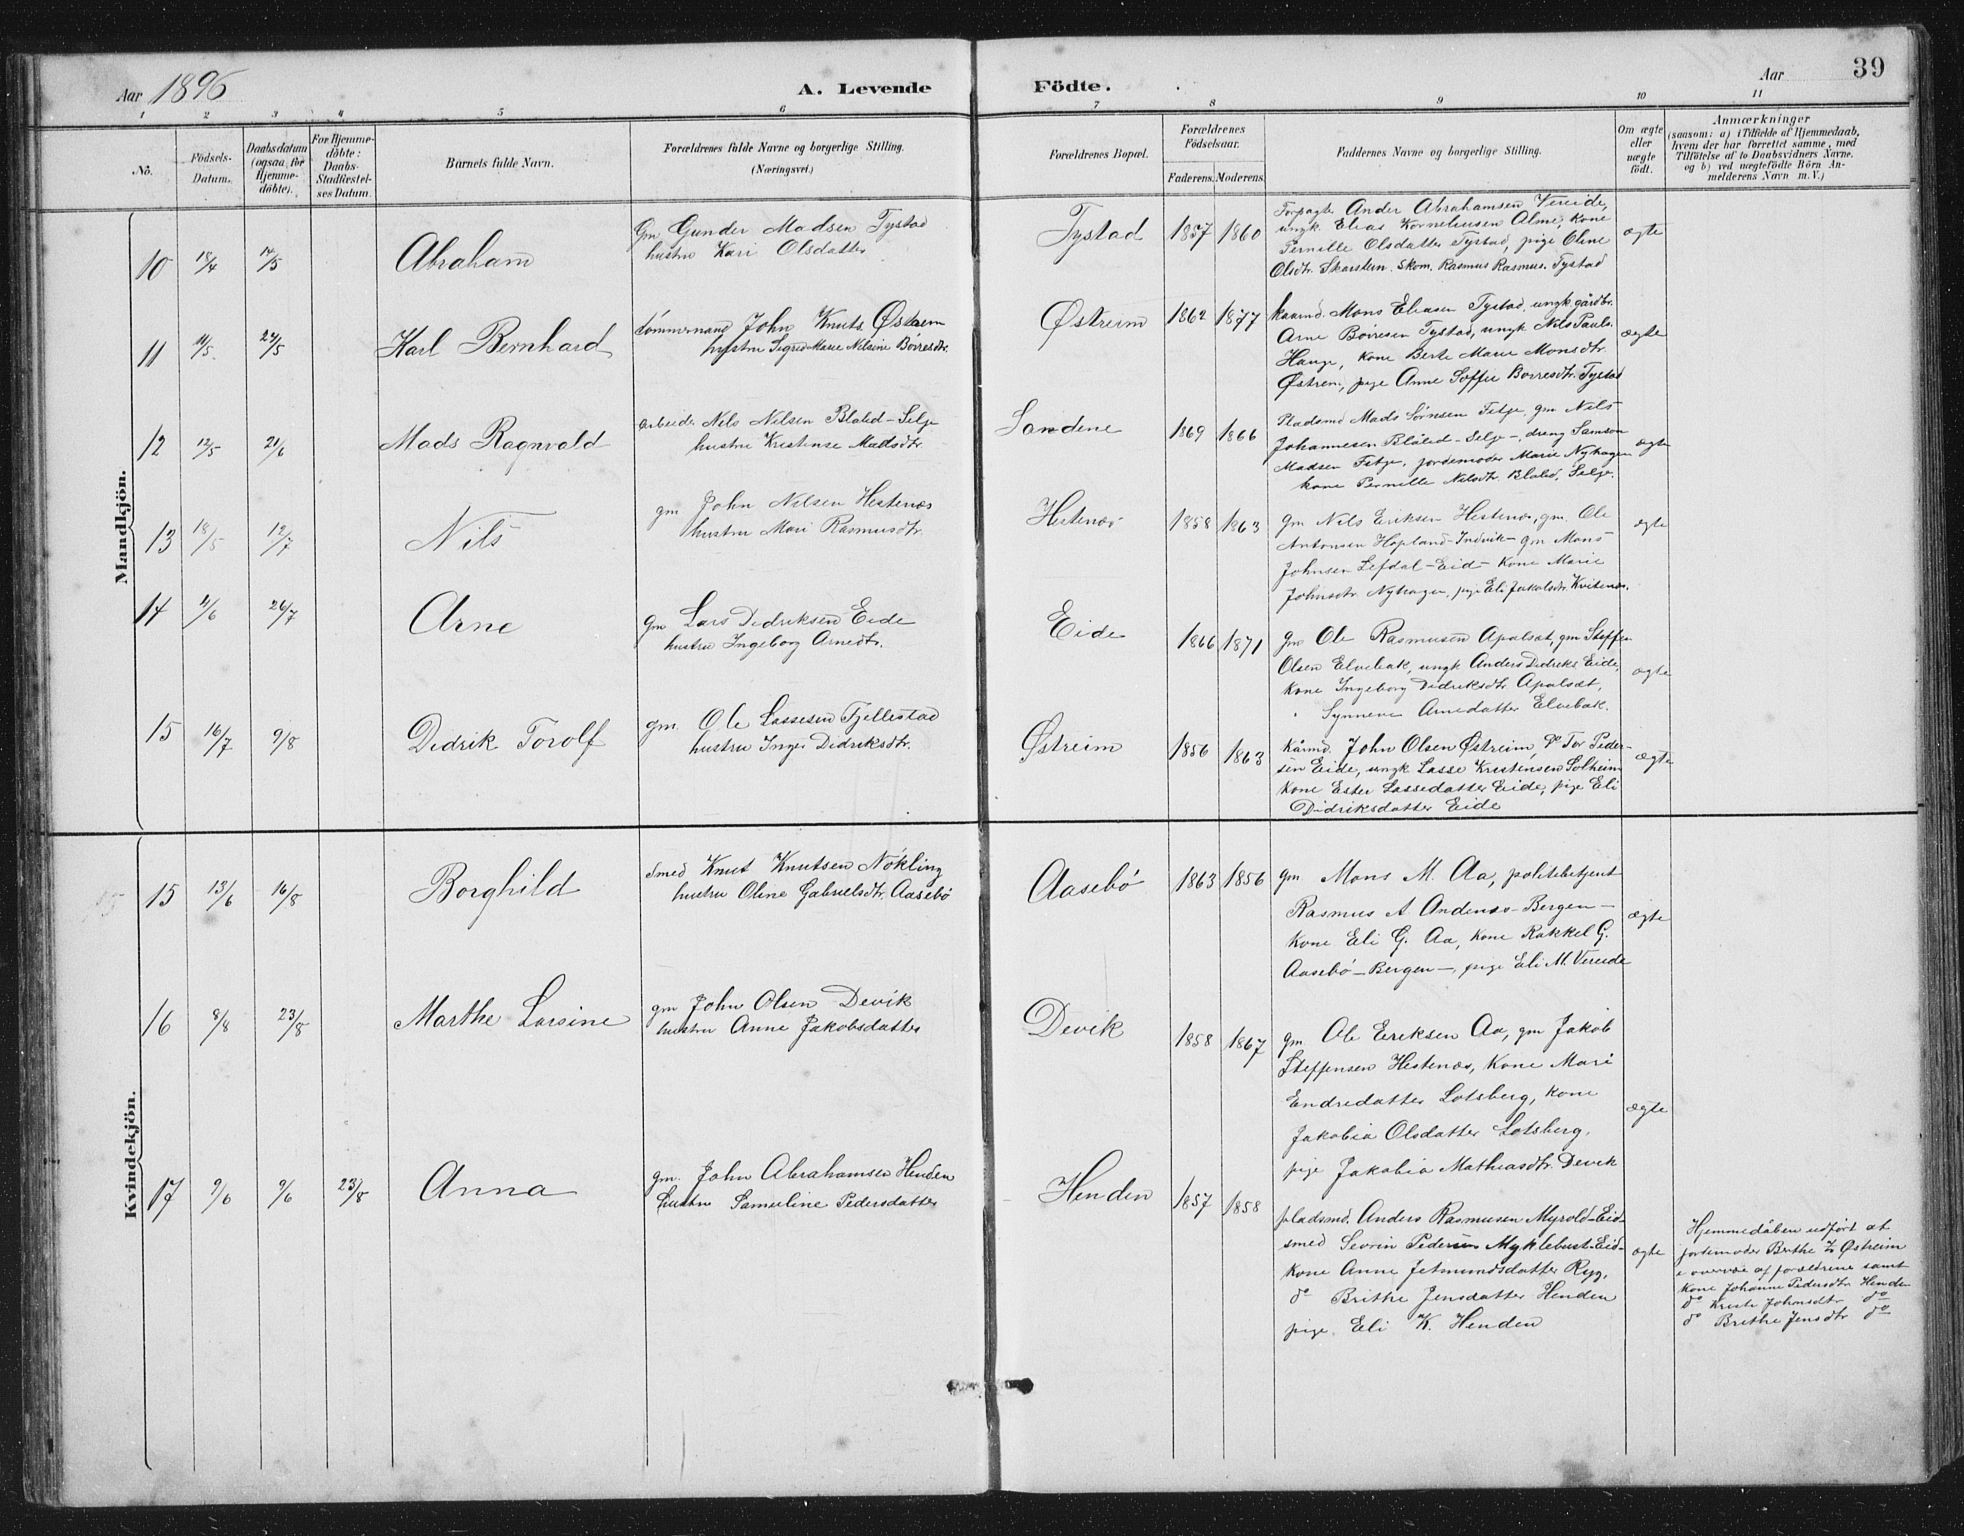 Aar 1896
A. Levende Födte.
Aar
39
1 2 3 4 5 6 7 8 9 10 11
No.
Födsels-Datum.
Daabsdatum (ogsaa for Hjemme-döbte).
For Hjemme-döbte: Daabs-Stadfæstel-ses Datum.
Barnets fulde Navn.
Forældrenes fulde Navne og borgerlige Stilling.
(Næringsvei.)
Forældrenes Bopæl.
Forældrenes Födselsaar.
Faderens. Moderens.
Faddernes Navne og borgerlige Stilling.
Om ægte eller uægte födt.
Anmærkninger
(saasom: a) i Tilfælde af Hjemmedaab,
hvem der har forrettet samme, med
Tilföielse af to Daabsvidners Navne,
og b) ved uægtefödte Börn An-
melderens Navn m. V.)
Mandkjön.
10 18/4 14/5 Abraham
Gm Gunder Madsen Tystad
hustru Kari Olsdatter
Tystad 1857 1860
Forpagter Ander Abrahamsen Vereide,
ungk. Elias Korneliussen Alme, kone
Pernille Olsdatter Tystad, pige Oline
Olsdtr. Skarsten. Skom. Rasmus Rasmus. Tystad
ægte
11 11/5 24/5 Karl Bernhard
tömmermand John Knuts. Østrem
hustru Sigred Marie Nilsine Børresdtr.
Østreim 1862 1877
kaarmd. Mons Eliasen Tystad, ungk. gårdbr.
Arne Børresen Tystad, ungk Nils Pauls.
Hauge, kone Berte Marie Monsdtr.
Østrem, pige Anne Soffie Børresdtr. Tystad
ægte
12 12/5 21/6 Mads Ragnvald
arbeider Nils Nilsen Blålid-Selje
hustru Kristense Madsdtr.
Sandene 1869 1866
Pladsmd Mads Sørnsen Fitje, gm Nils
Johannesen Blålid-Selje-, dreng Samson
Madsen Fitje, jordemoder Marie Nyhagen
kone Pernille Nilsdtr. Blålid, Selje.
ægte
13 18/5 12/7 Nils
gm John Nilsen Hestenæs
hustru Mari Rasmusdtr.
Hestenæs 1858 1863
gm Nils Eriksen Hestenæs, gm. Ole
Antonsen Hopland-Indvik- gm Mons
Johnsen Lefdal-Eid- kone Marie
Johnsdtr. Nyhagen, pige Eli Jakobsdtr Kvitenæs.
ægte
14 2/6 26/7 Arne
gm Lars Didriksen Eide
hustru Ingeborg Arnesdtr.
Eide 1866 1871
gm Ole Rasmusen Apalset, gm Steffen
Olsen Elvebak, ungk Anders Didriks Eide,
kone Ingeborg Didriksdtr Apalset,
" Synneve Arnedatter Elvebak.
ægte
15 16/7 9/8 Didrik Torolf
gm. Ole Lassesen Fjellestad
hustru Inger Didriksdtr.
Østreim 1856 1863
Kårmd. John Olsen Østreim, do Tor Peder-
sen Eide, ungk Lasse Kristensen Solheim
kone Ester Lassedatter Eide, pige Eli
Didriksdatter Eide
ægte
Kvindekjön.
15
15 13/6 16/8 Borghild
smed Knut Knutsen Nökling
hustru Oline Gabrielsdtr. Aasebö
Aasebö 1863 1856
gm Mons M. Aa, politibetjent
Rasmus A Andenæs-Bergen-
kone Eli G. Aa, kone Rakkel G.
Aasebö-Bergen-, pige Eli M. Vereide
ægte
16 8/8 23/8 Marthe Larsine
gm John Olsen Devik
hustru Anne Jakobsdatter
Devik 1858 1867
gm Ole Eriksen Aa, gm Jakob
Steffensen Hestenæs, kone Mari
Endredatter Lotsberg, kone
Jakobia Olsdatter Lotsberg,
pige Jakobia Mathiasdtr. Devik
ægte
17 9/6 9/6 23/8 Anna
gm. John Abrahamsen Henden
hustru Samueline Pedersdatter
Henden 1857 1858
pladsmd. Anders Rasmusen Myrold-Eid-
smed Sevrin Pedersen Myklebust-Eid-
kone Anne Jetmundsdatter Ryg,
do Brithe Jensdatter Henden
pige Eli K. Henden
ægte
Hjemmedåben udført at
jordemoder Berthe Østreim
i overvær af forældrene samt
kone Johanne Pedersdtr. Henden
do Kristi Johnsdtr do
do Brithe Jensdtr do